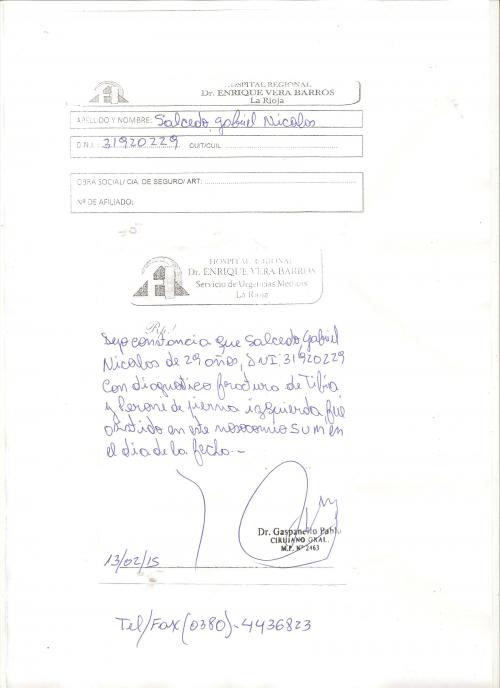 HOSPITAL REGIONAL
Dr. ENRIQUE VERA BARROS
La Rioja
APELLIDO Y NOMBRE: Salcedo, Gabriel Nicolas
D.N.I.: 31920229 CUIT/CUIL:
OBRA SOCIAL/ CIA. DE SEGURO/ ART:
Nº DE AFILIADO:
HOSPITAL REGIONAL
Dr. ENRIQUE VERA BARROS
Servicio de Urgencias Medicas
La Rioja
Rp.!
Dejo constancia que Salcedo, Gabriel
Nicolas de 29 años, DNI. 31920229
Con diagnostico fractura de Tibia
y Perone de pierna izquierda, fue
asistido en este nosocomio SUM en
el dia de la fecha.-
Dr. Gaspanello Pablo
CIRUJANO GRAL.
M.P. Nº 2463
13/02/15
Tel/Fax (0380)-4436823